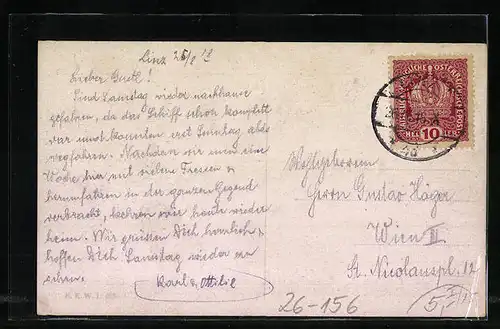 Linz 25/8 18
Lieber Gustl!
Sind Samstag wieder nachhause
gefahren, da das Schiff schon komplett
war und konnten erst Sonntag abds
wegfahren. Nachdem wir nun eine
Woche hier mit vielen Fressen &
herumfahren in der ganzen Gegend
verbracht, kehren wir heute wieder
heim. Wir grüssen Dich herzlichst,
hoffen Dich Samstag wieder zu
sehen.
Karl & Ottilie
Wohlgeboren
Herrn Gustav Höger
Wien III
St. Nicolauspl. 12
KAISERLICHE KÖNIGLICHE ÖSTERREICHISCHE POST
10
HELLER
26-156
5,-